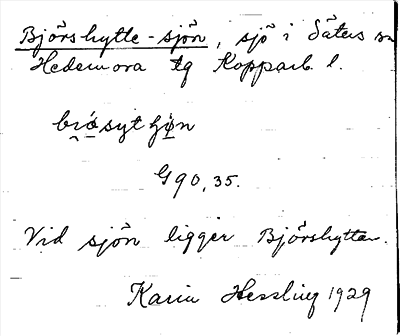 Björshytte-sjön, sjö i Säters sn
Hedemora tg Kopparb. l.
brö́syt ʃøn
G 90, 35.
Vid sjön ligger Björshyttan.
Karin Hessling 1929